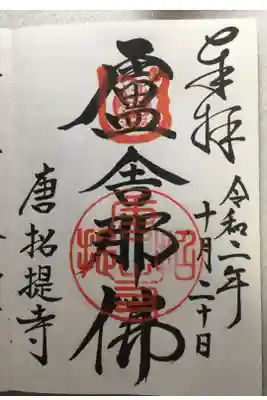 奉拝
令和二年
十月二十日
盧舎那佛
唐招提寺